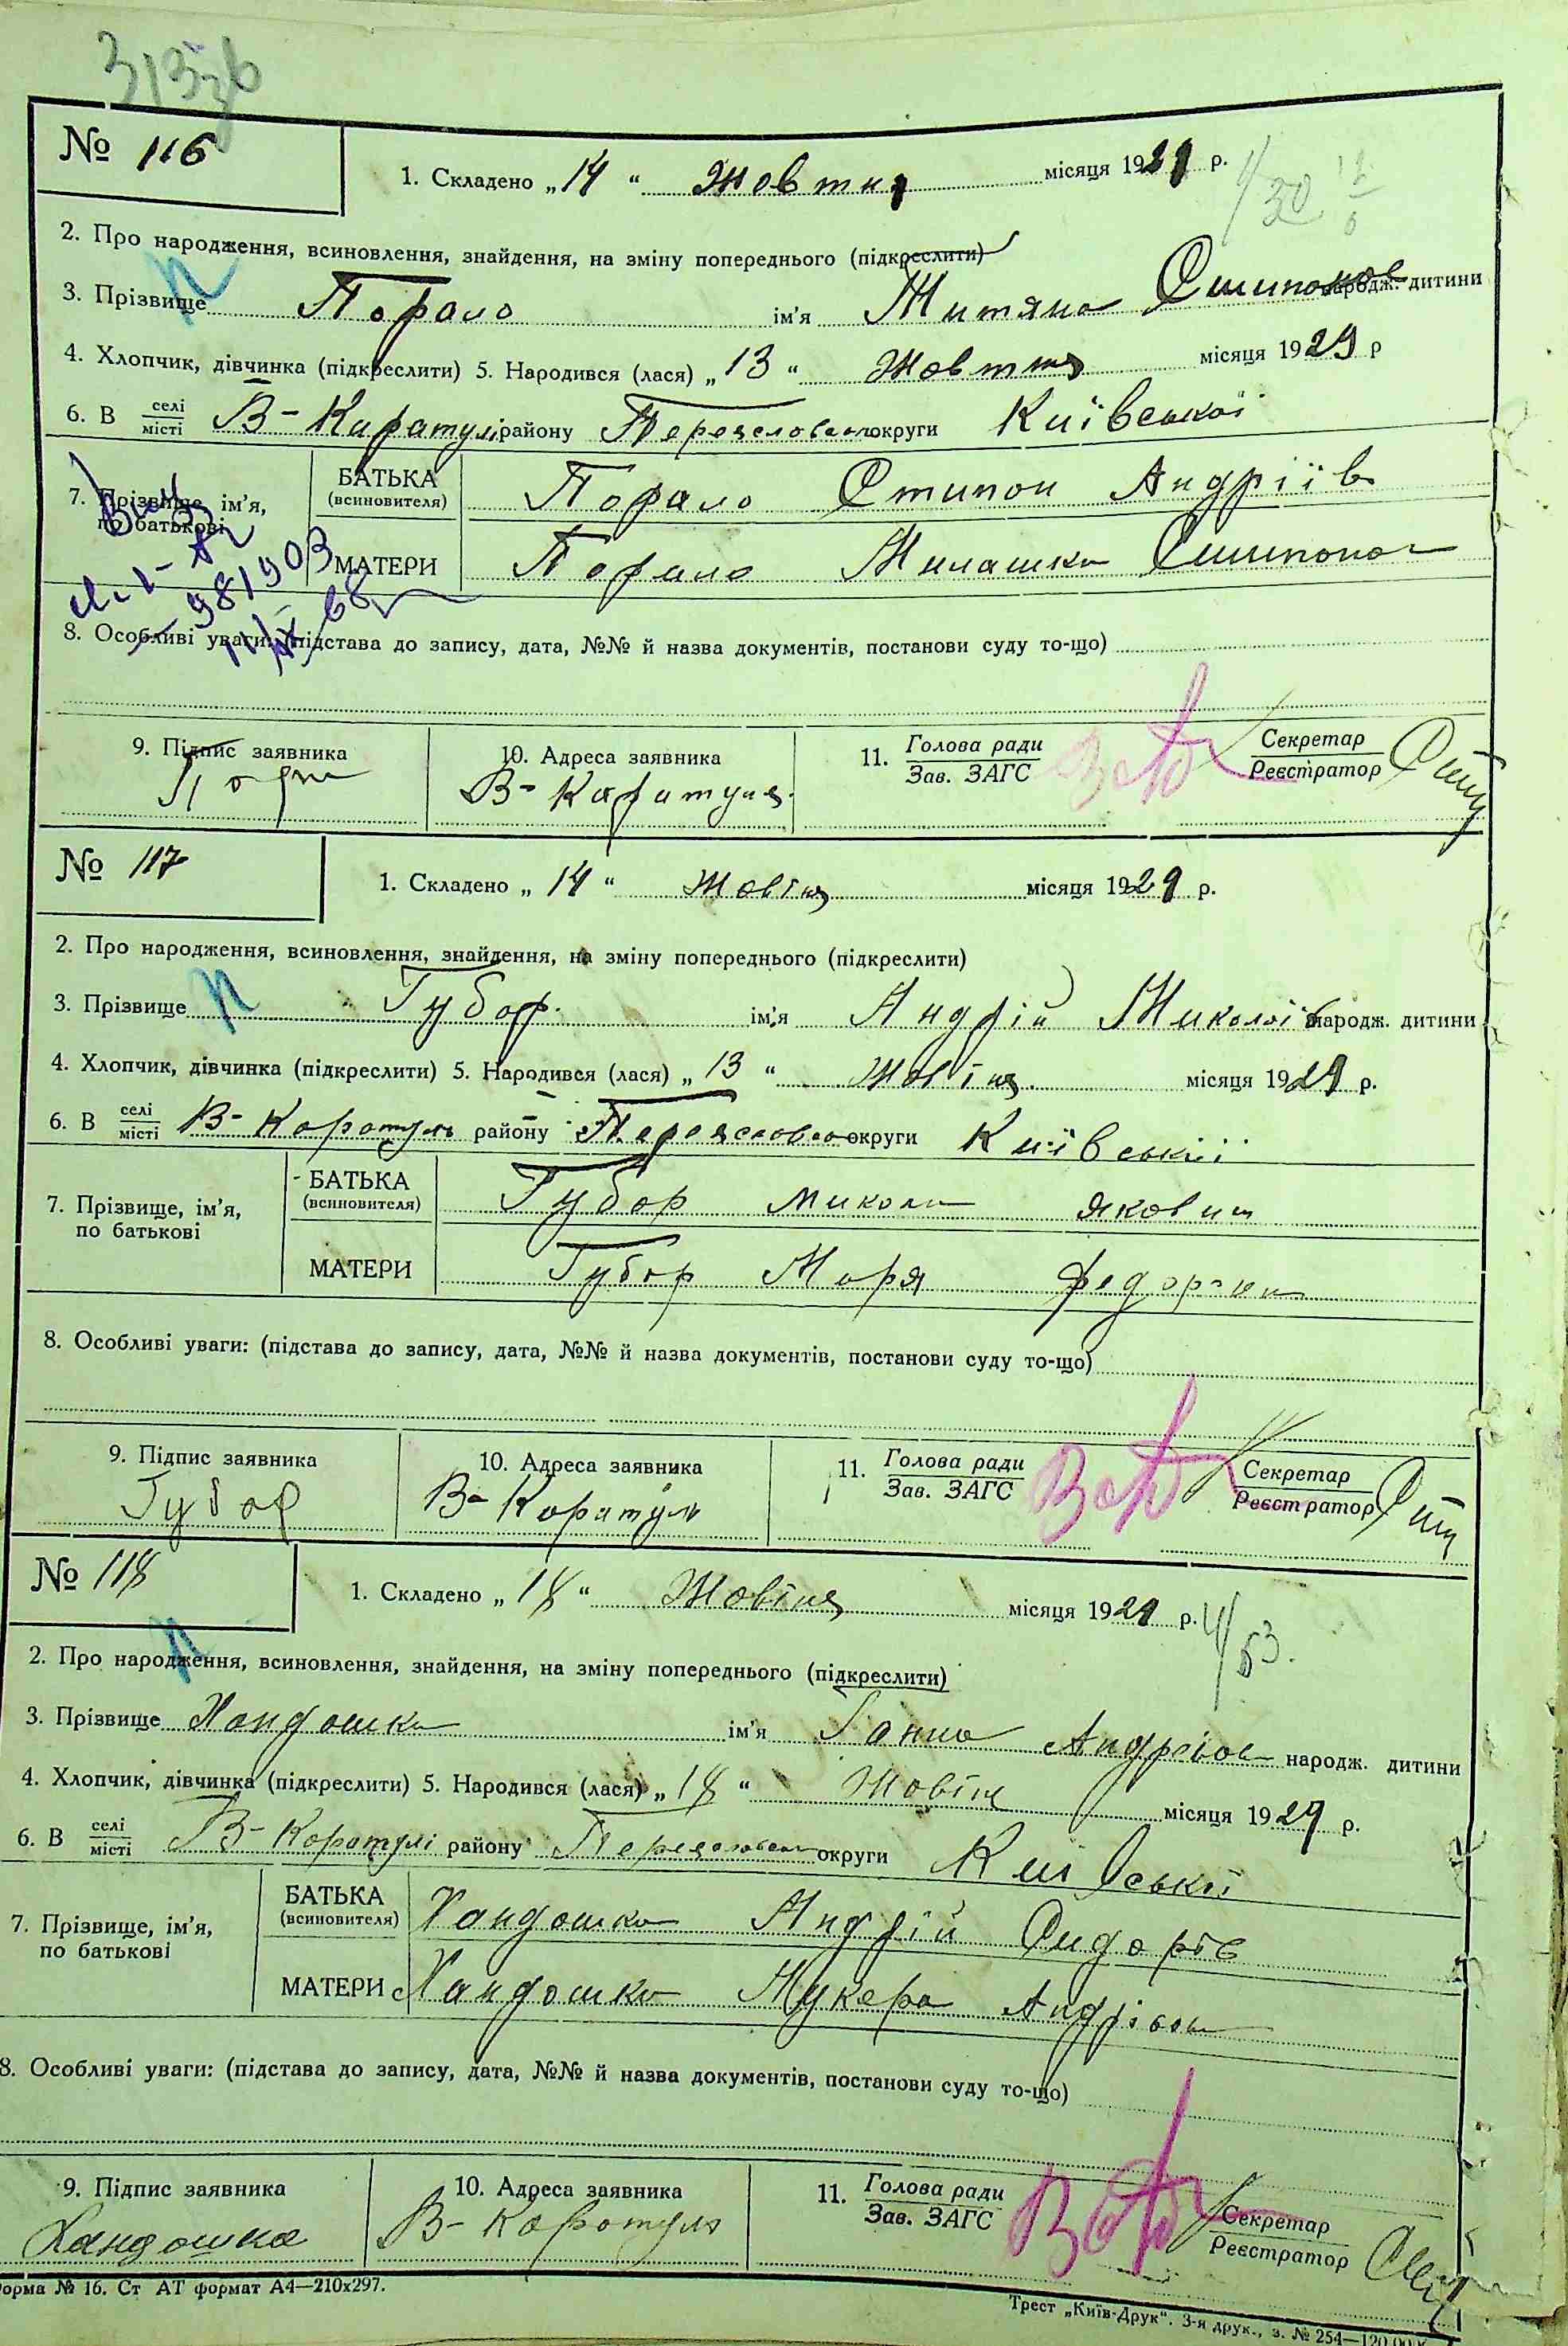 № 116
1. Складено „14“ Жовтня місяця 1929 р.
2. Про народження, всиновлення, знайдення, на зміну попереднього (підкреслити)
3. Прізвище Порало ім'я народж. дитини
4. Хлопчик, дівчинка (підкреслити) 5. Народився (лася) „13“ Жовтня місяця 1929 р
6. В селі місті В-Каратулі району округи Київської
7. Прізвище, ім'я, по батькові
БАТЬКА (всиновителя) Порало Степан Андріїв
МАТЕРИ Порало
8. Особливі уваги: (підстава до запису, дата, №№ й назва документів, постанови суду то-що)
9. Підпис заявника
10. Адреса заявника
В-Каратуля
11. Голова ради
Зав. ЗАГС
Секретар
Реєстратор
№ 117
1. Складено „14“ Жовтня місяця 1929 р.
2. Про народження, всиновлення, знайдення, на зміну попереднього (підкреслити)
3. Прізвище Губар ім'я Андрій Миколаїв народж. дитини
4. Хлопчик, дівчинка (підкреслити) 5. Народився (лася) „13“ Жовтня місяця 1929 р.
6. В селі місті В-Каратуль району округи Київської
7. Прізвище, ім'я, по батькові
БАТЬКА (всиновителя) Губар Микола Якович
МАТЕРИ Губар Марія
8. Особливі уваги: (підстава до запису, дата, №№ й назва документів, постанови суду то-що)
9. Підпис заявника
Губар
10. Адреса заявника
В-Каратуль
11. Голова ради
Зав. ЗАГС
Секретар
Реєстратор
№ 118
1. Складено „18“ Жовтня місяця 1929 р.
2. Про народження, всиновлення, знайдення, на зміну попереднього (підкреслити)
3. Прізвище Хандошка ім'я Ганна народж. дитини
4. Хлопчик, дівчинка (підкреслити) 5. Народився (лася) „18“ Жовтня місяця 1929 р.
6. В селі місті В-Каратулі району округи Київської
7. Прізвище, ім'я, по батькові
БАТЬКА (всиновителя) Хандошка Андрій Сидорів
МАТЕРИ Хандошка
8. Особливі уваги: (підстава до запису, дата, №№ й назва документів, постанови суду то-що)
9. Підпис заявника
Хандошка
10. Адреса заявника
В-Каратуля
11. Голова ради
Зав. ЗАГС
Секретар
Реєстратор
форма № 16. Ст АТ формат А4—210x297.
Трест „Київ-Друк“. 3-я друк., з. № 254—120.00